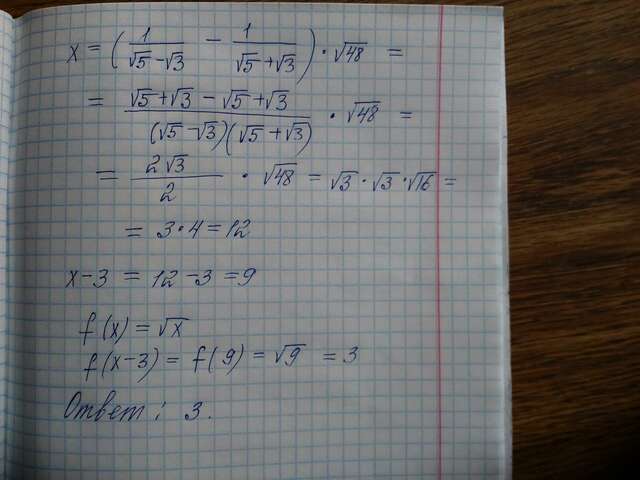 x = ( 1/(√5−√3) − 1/(√5+√3) ) · √48 =
= (√5+√3−√5+√3)/((√5−√3)(√5+√3)) · √48 =
= 2√3/2 · √48 = √3 · √3 · √16 =
= 3·4=12
x−3 = 12−3=9
f(x)=√x
f(x−3)= f(9)=√9 =3
Ответ: 3.